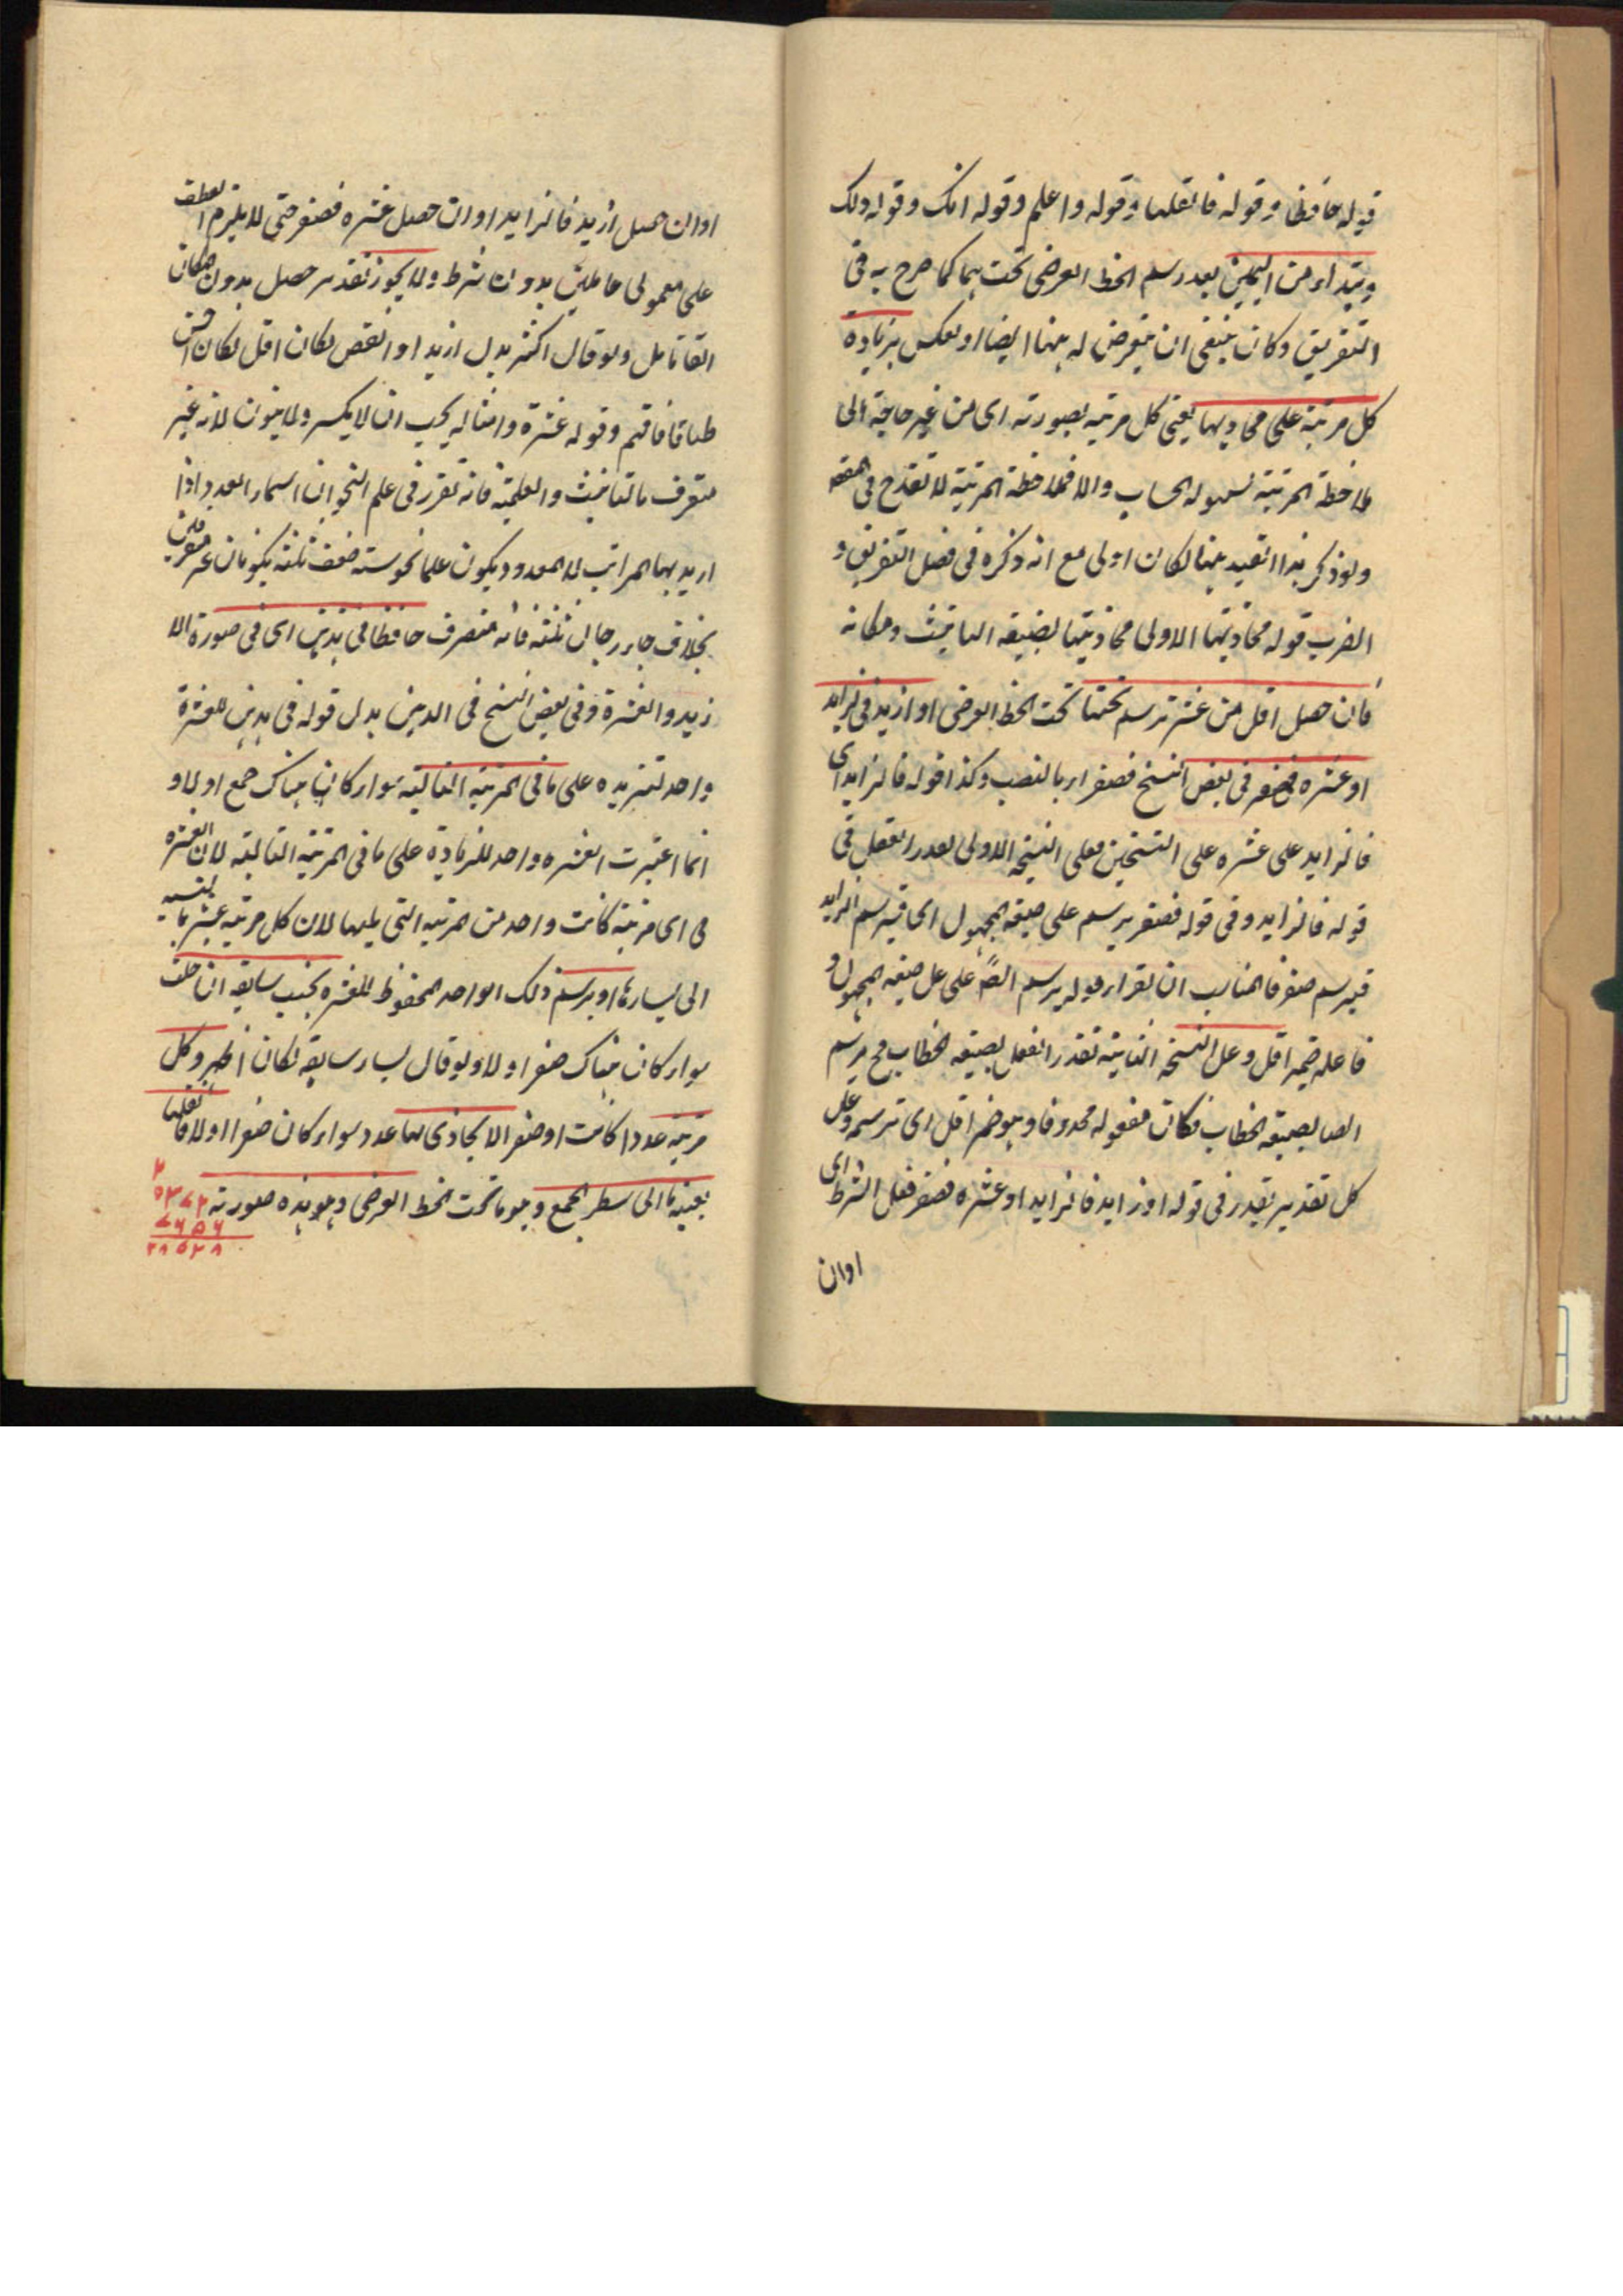 قوله حافظا وقوله فانقلها وقوله واعلم وقوله انك وقوله ولك
ويبتداء من اليمين بعد رسم الخط العرضى تحتهما كما صرح به فى
التفريق وكان ينبغى ان يتعرض له ههنا ايضا او يعكس بزيادة
كل مرتبة على محاذيها يعنى كل مرتبه بصورته اى من غير حاجة الى
ملاحظة المرتبة لسهولة الحساب والا فملاحظة المرتبة لا تقدح فى المقصود
ولو ذكر هذا القيد ههنا لكان اولى مع انه ذكره فى فصل التفريق و
الضرب قوله محاذيتها الاولى محاذيتها بصيغه التانيث ومكانه
فان حصل اقل من عشر ترسم تحتها تحت الخط العرضى او ازيد فالزايد
او عشره فصفر فى بعض النسخ فصفرا بالنصب وكذا قوله فالزايد اى
فالزايد على عشره على النسختين فعلى النسخه الاولى يقدر الفعل فى
قوله فالزايد وفى قوله فصفر يرسم على صيغه المجهول اى فيرسم الزايد
فيرسم صفر فالمناسب ان يقراء قوله يرسم ايضا على صيغه المجهول و
فاعله ضمير اقل وعلى النسخه الثانيه تقدر الفعل بصيغه الخطاب فح ترسم
ايضا بصيغه الخطاب فكان مفعوله محذوفا وهو ضمير اقل اى ترسمه وعلى
كل تقدير يقدر فى قوله او زايد فالزايد او عشره فصفر فعل الشرط اى
اوان
اوان حصل ازيد فالزايد اوان حصل عشره فصفر حتى لا يلزم العطف
على معمولى عاملين بدون شرط ولا يجوز تقدير حصل بدون ان كان
القا تامل ولو قال اكثر بدل ازيد او انقص لكان اقل لكان احسن
طباقا فافهم وقوله عشرة وامثاله يجب ان لا يكسر ولا ينون لانه غير
منصرف بالتانيث والعلمية فانه تقرر فى علم النحو ان اسماء العدد اذا
اريد بها المراتب لا المعدود يكون علما نحو ستة ضعف ثلثة يكونان غير منصرفين
بخلاف جاء رجال ثلثة فانه منصرف حافظا فى هذين اى فى صورة الا
زيد والعشرة وفى بعض النسخ فى الدين بدل قوله فى هذين للعشرة
واحد لتزيده على ما فى المرتبة التالية سواء كان هناك جمع اولا و
انما اعتبرت العشره واحد للزيادة على ما فى المرتبة التالية لان العشره
فى اى مرتبة كانت واحد من مرتبه التى يليها لان كل مرتبه عشر بالنسبه
الى يسارها او يرسم ذلك الواحد المحفوظ للعشره بجنب سابقه ان خلت
سواء كان هناك صفر اولا ولو قال يسار سابقه لكان اظهر وكل
مرتبه عددا كانت او صفر الا يحاذى لها عدد سواء كان صفرا اولا فانقلها
بعينها الى سطر الجمع وهو ما تحت الخط العرضى وهو هذه صورته